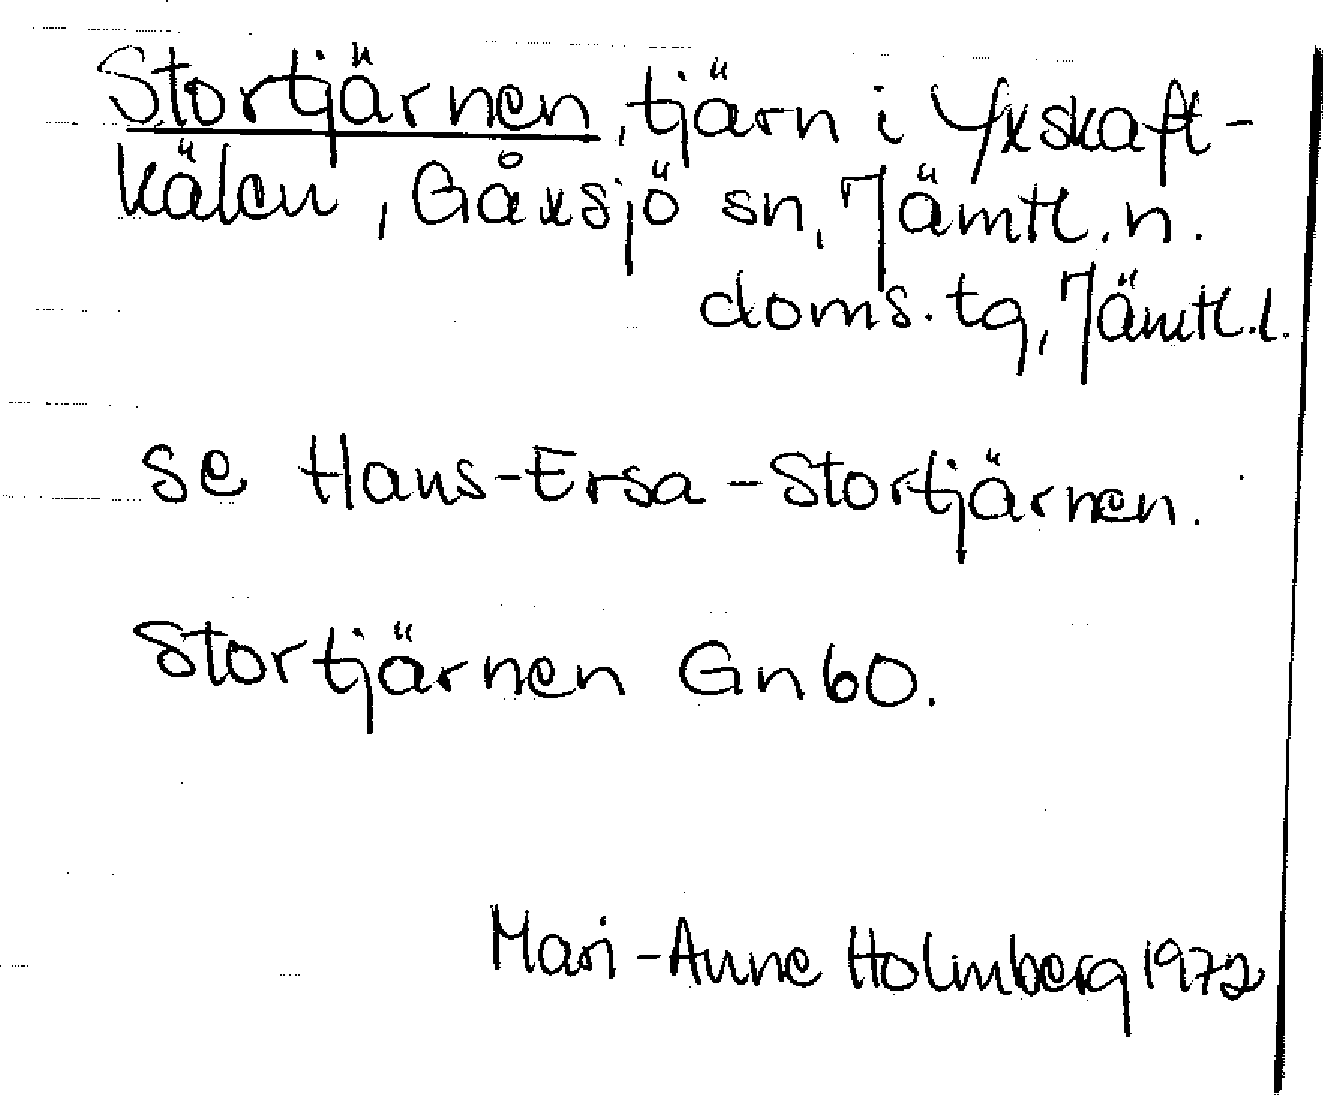 Stortjärnen, tjärn i Yxskaft-
kälen, Gåxsjö sn, Jämtl. n.
doms. tg, Jämtl. l.
se Hans-Ersa-Stortjärnen.
Stortjärnen Gn 60.
Mari-Anne Holmberg 1972